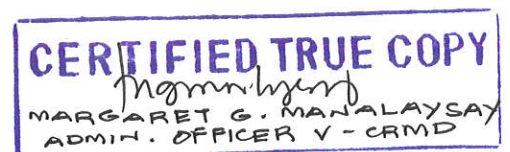 CERTIFIED TRUE COPY
MARGARET G. MANALAYSAY
ADMIN. OFFICER V - CRMD